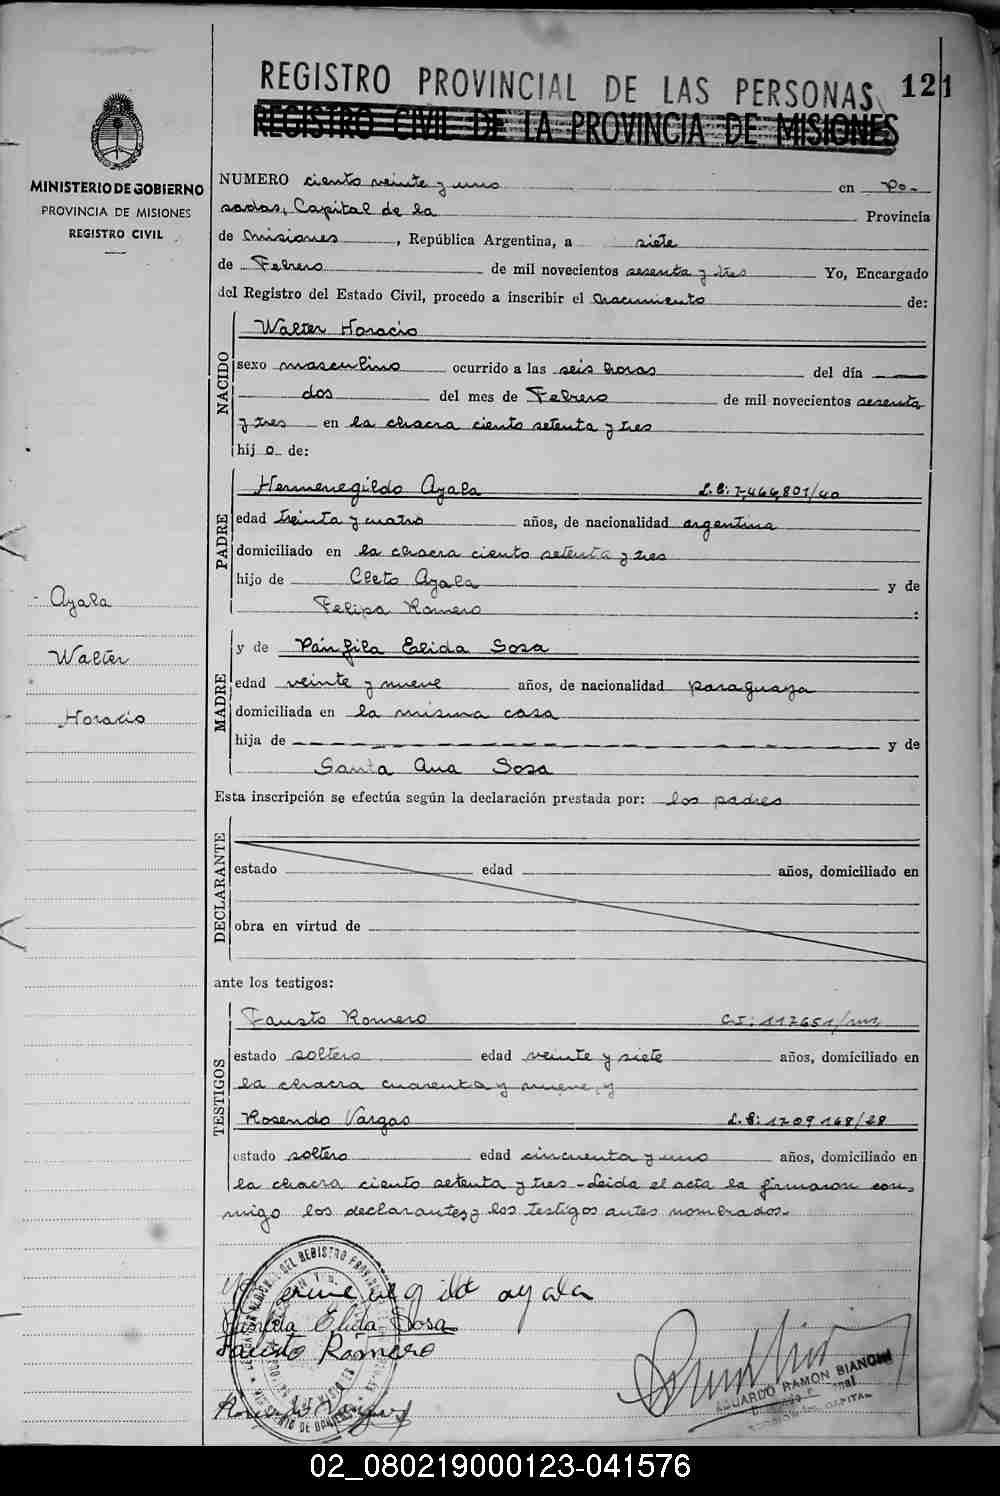 REGISTRO PROVINCIAL DE LAS PERSONAS 121
REGISTRO CIVIL DE LA PROVINCIA DE MISIONES
MINISTERIO DE GOBIERNO
PROVINCIA DE MISIONES
REGISTRO CIVIL
NUMERO ciento veinte y uno en Po-
sadas, Capital de la Provincia
de Misiones, República Argentina, a siete
de Febrero de mil novecientos sesenta y tres Yo, Encargado
del Registro del Estado Civil, procedo a inscribir el Nacimiento de:
NACIDO
Walter Horacio
sexo masculino ocurrido a las seis horas del día
dos del mes de Febrero de mil novecientos sesenta
y tres en la chacra ciento setenta y tres
hijo de:
PADRE
Hermenegildo Ayala L.E: 7,466,801/40
edad treinta y cuatro años, de nacionalidad argentina
domiciliado en la chacra ciento setenta y tres
hijo de Cleto Ayala y de
Felipa Romero :
Ayala
Walter
Horacio
MADRE
y de Pánfila Elida Sosa
edad veinte y nueve años, de nacionalidad paraguaya
domiciliada en la misma casa
hija de y de
Santa Ana Sosa
Esta inscripción se efectúa según la declaración prestada por: los padres
DECLARANTE
estado edad años, domiciliado en
obra en virtud de
ante los testigos:
TESTIGOS
Fausto Romero C.I: 117651/
estado soltero edad veinte y siete años, domiciliado en
la chacra cuarenta y nueve, y
Rosendo Vargas L.E: 1209168/28
estado soltero edad cincuenta y uno años, domiciliado en
la chacra ciento setenta y tres - Leida el acta la firmaron con-
migo los declarantes y los testigos antes nombrados.-
Hermenegildo ayala
Elida Sosa
Fausto Romero
Vargas
EDUARDO RAMON BIANCHI
CAPITAL
02_080219000123-041576